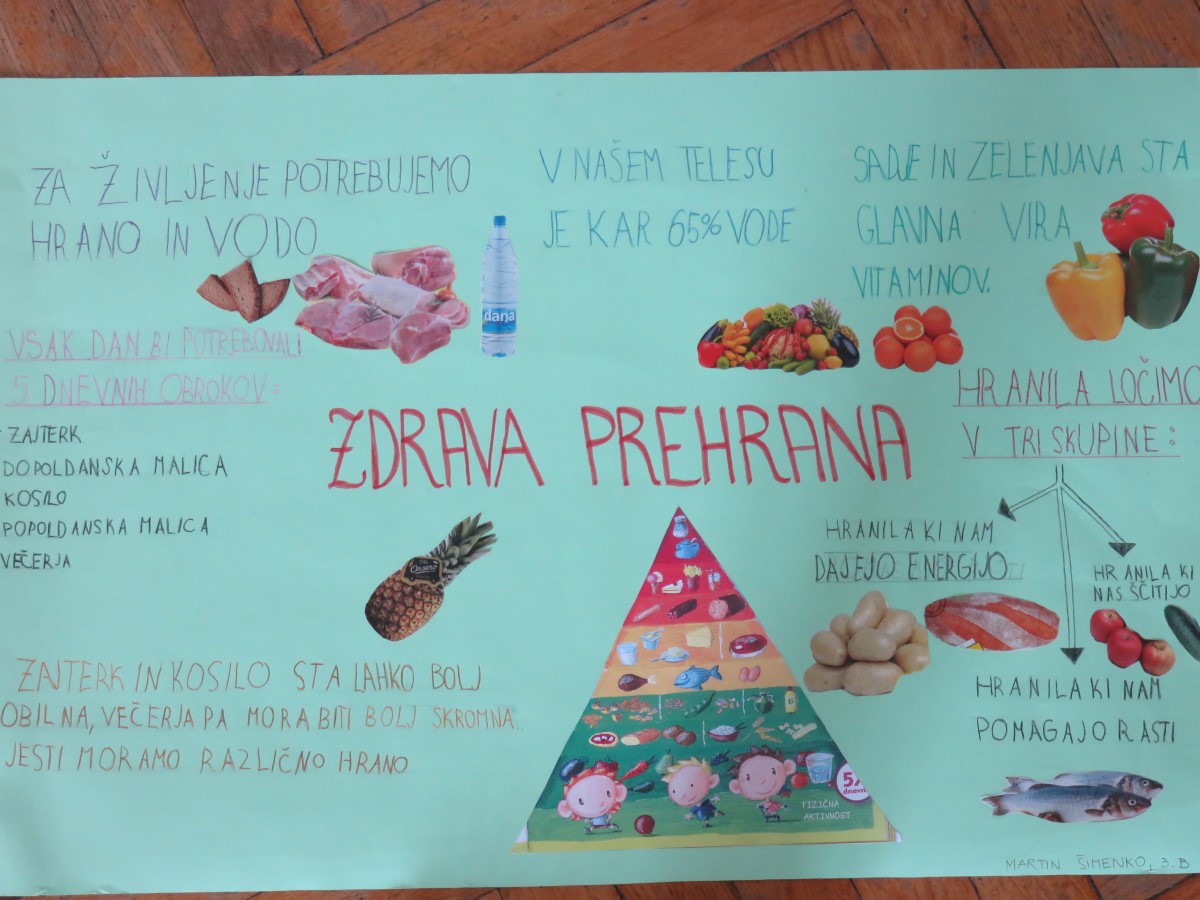 ZA ŽIVLJENJE POTREBUJEMO
HRANO IN VODO
dana
V NAŠEM TELESU
JE KAR 65% VODE
SADJE IN ZELENJAVA STA
GLAVNA VIRA
VITAMINOV.
VSAK DAN BI POTREBOVALI
5 DNEVNIH OBROKOV:
ZAJTERK
DOPOLDANSKA MALICA
KOSILO
POPOLDANSKA MALICA
VEČERJA
ZDRAVA PREHRANA
HRANILA LOČIMO
V TRI SKUPINE:
HRANILA KI NAM
DAJEJO ENERGIJO
HRANILA KI
NAS ŠČITIJO
HRANILA KI NAM
POMAGAJO RASTI
ZAJTERK IN KOSILO STA LAHKO BOLJ
OBILNA, VEČERJA PA MORA BITI BOLJ SKROMNA.
JESTI MORAMO RAZLIČNO HRANO
5X
dnevno
FIZIČNA
AKTIVNOST
MARTIN ŠIMENKO, 3. B